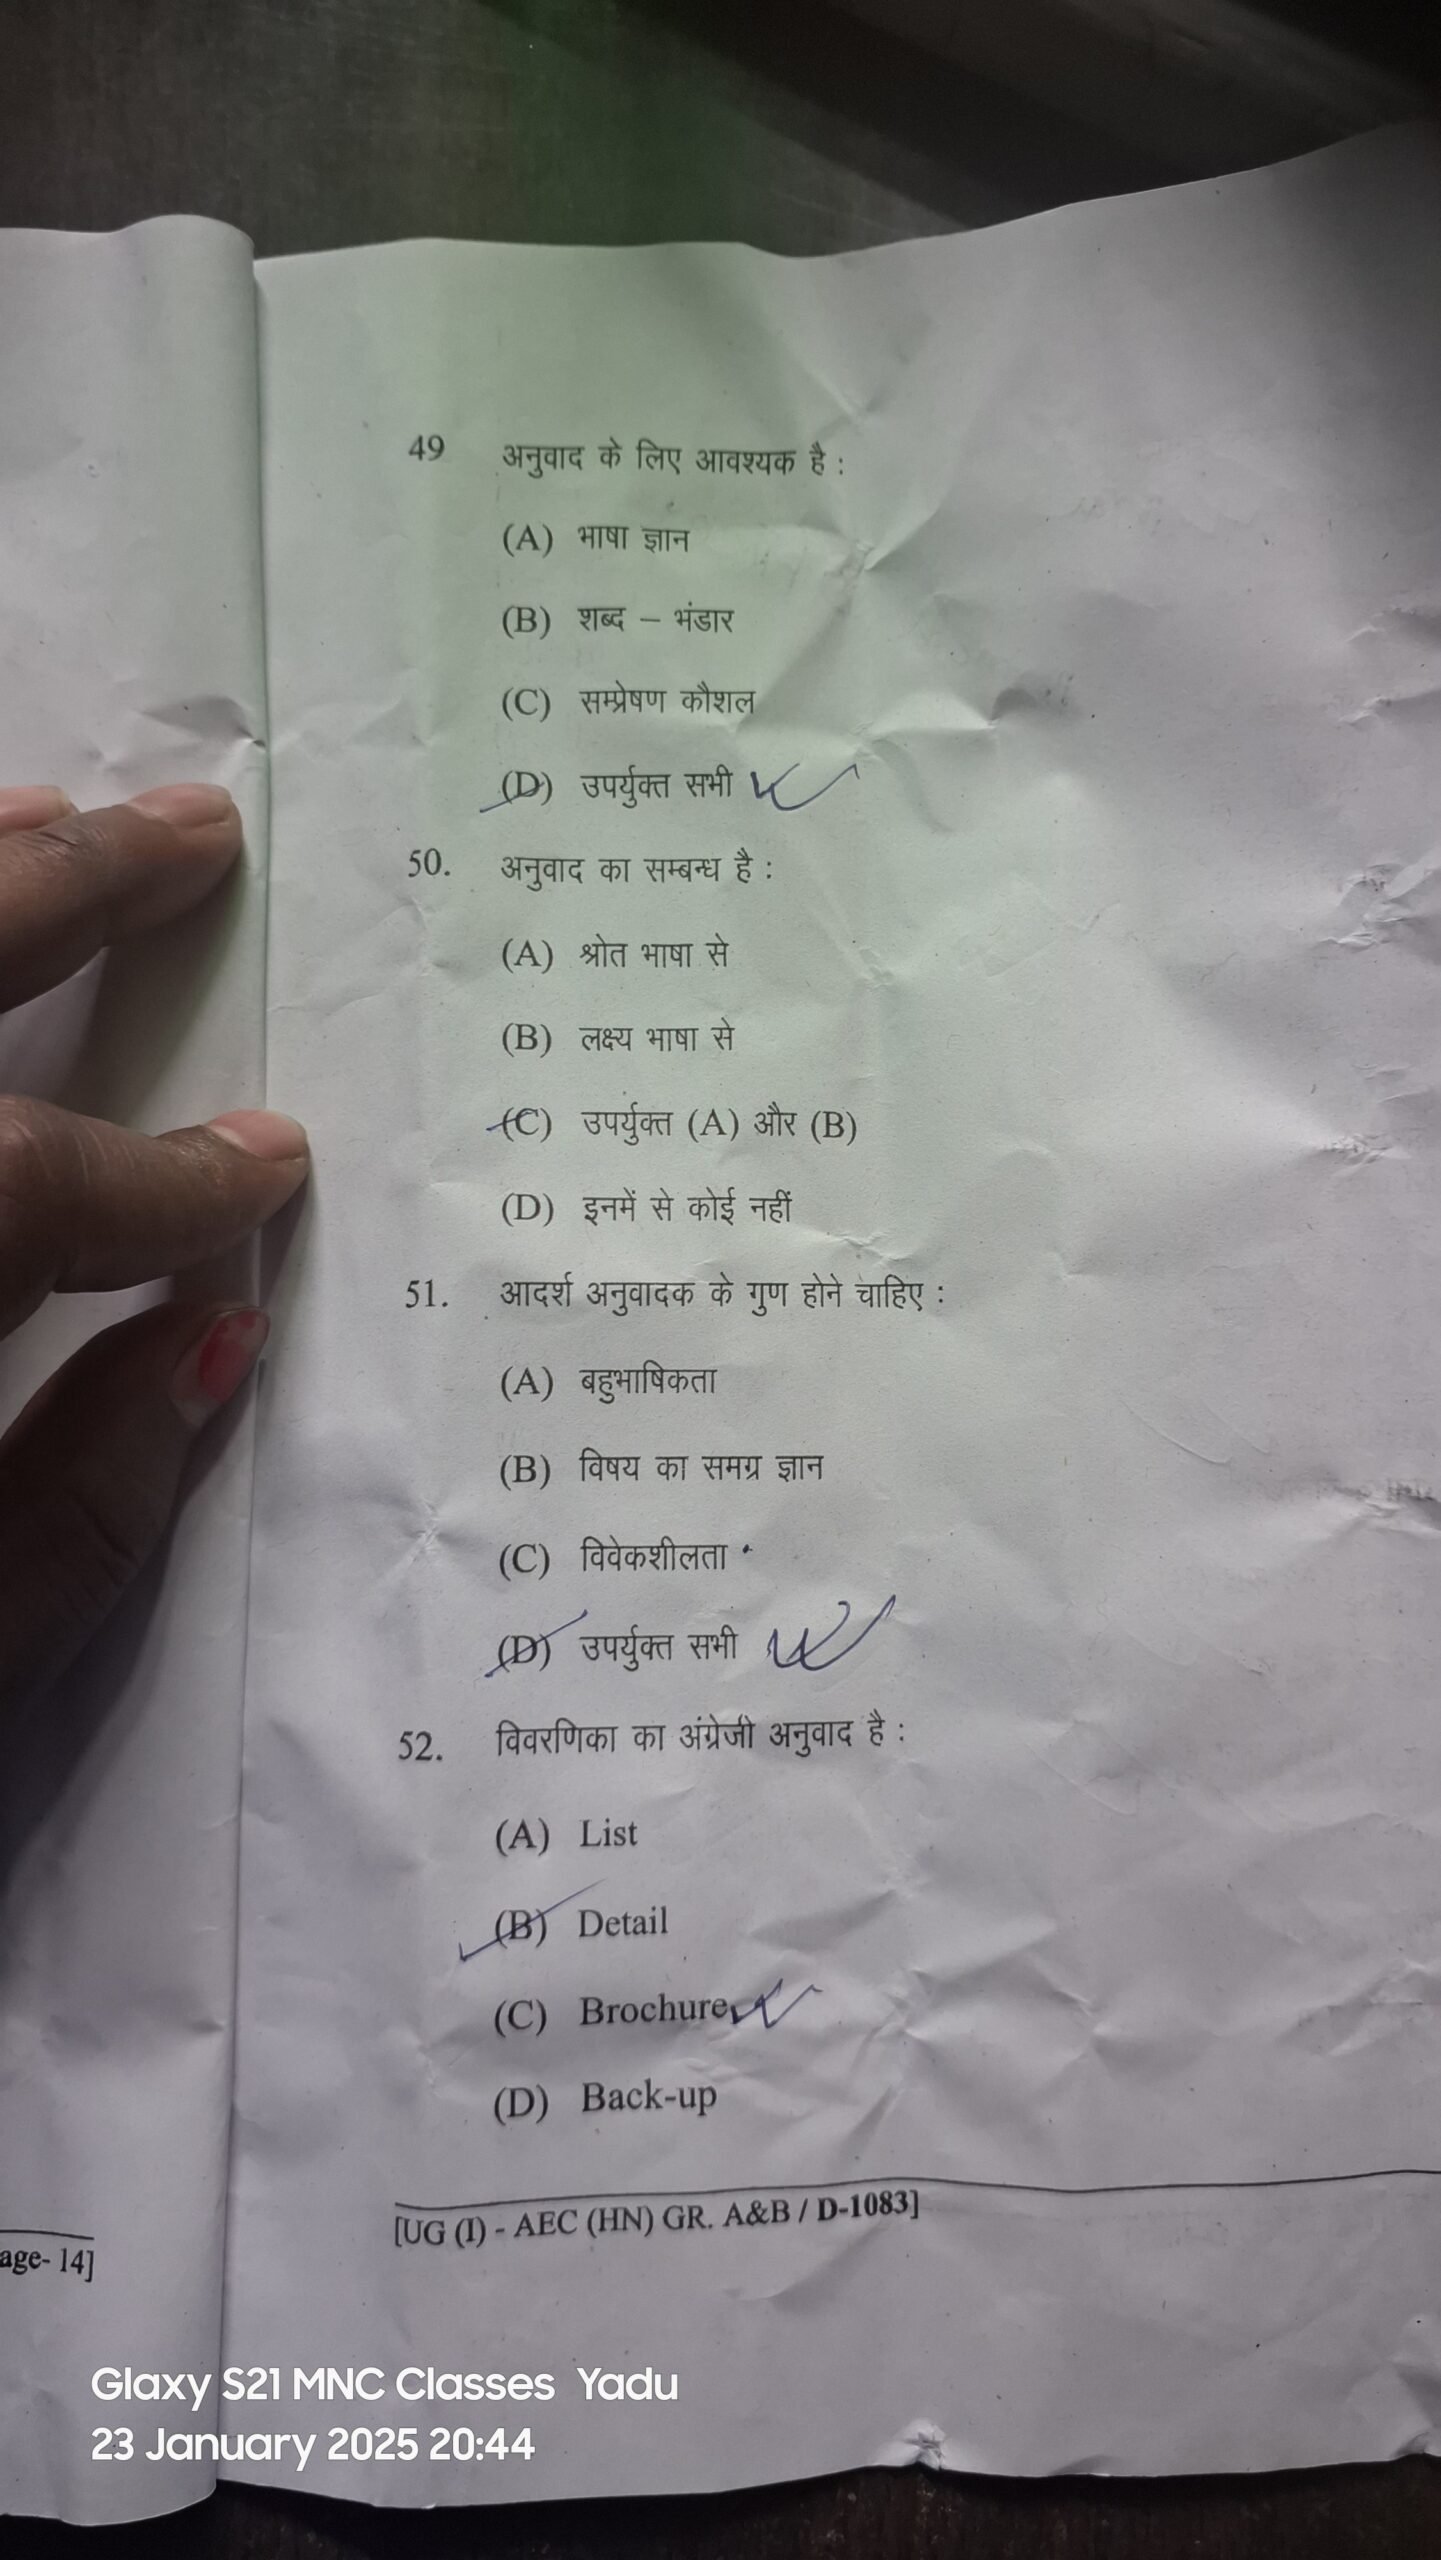 49 अनुवाद के लिए आवश्यक है :
(A) भाषा ज्ञान
(B) शब्द – भंडार
(C) सम्प्रेषण कौशल
(D) उपर्युक्त सभी
50. अनुवाद का सम्बन्ध है :
(A) श्रोत भाषा से
(B) लक्ष्य भाषा से
(C) उपर्युक्त (A) और (B)
(D) इनमें से कोई नहीं
51. आदर्श अनुवादक के गुण होने चाहिए :
(A) बहुभाषिकता
(B) विषय का समग्र ज्ञान
(C) विवेकशीलता
(D) उपर्युक्त सभी
52. विवरणिका का अंग्रेजी अनुवाद है :
(A) List
(B) Detail
(C) Brochure
(D) Back-up
[UG (I) - AEC (HN) GR. A&B / D-1083]
age- 14]
Glaxy S21 MNC Classes Yadu
23 January 2025 20:44